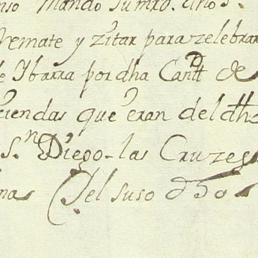 nso Mando Sumro. dho s.
remate y zitar para zelebrar
e Ybarra por dha Cantd de
ciendas que eran del dho
S.n Diego las Cruzes
nas (del suso dho